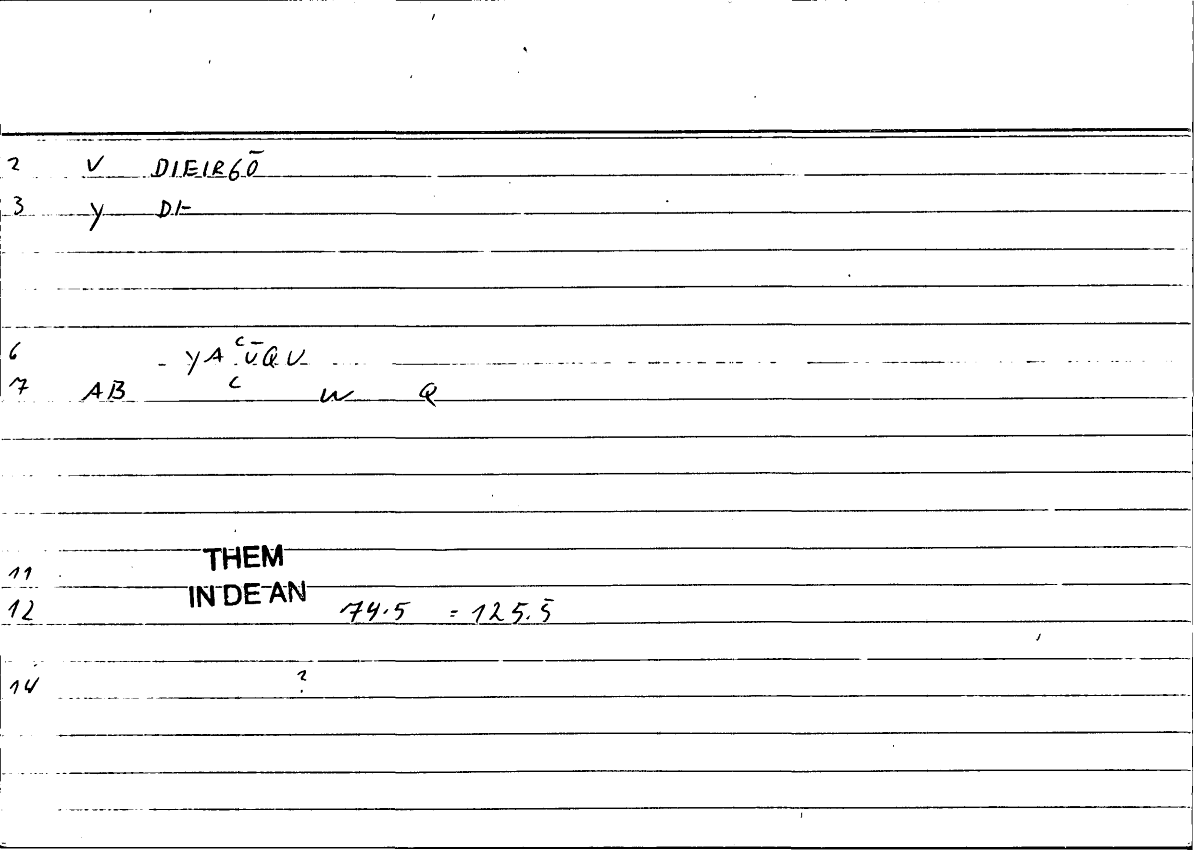 2 V DIEIR60̄
3 Y DI-
6 - YA C ŪQU
7 AB C W Q
THEM
11
IN DE AN
12 74.5 = 125.5̄
14 ?